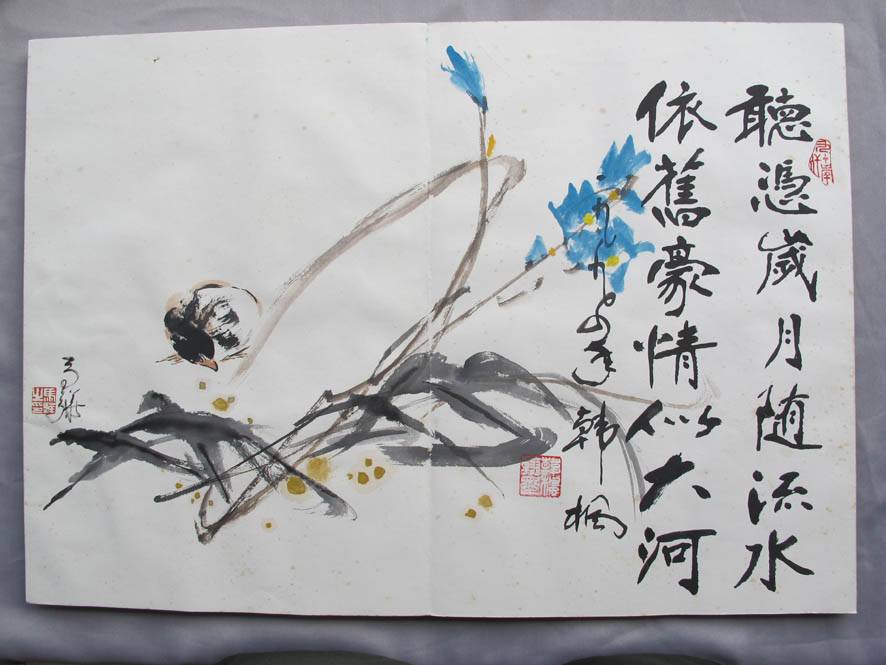 聽憑歲月随流水
依舊豪情似大河
韩枫